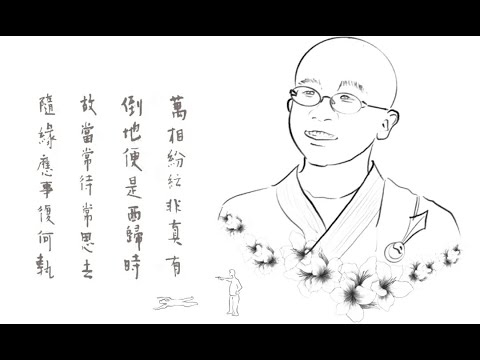 萬相紛紜非真有
倒地便是西歸時
故當常待常思去
隨緣應事復何執